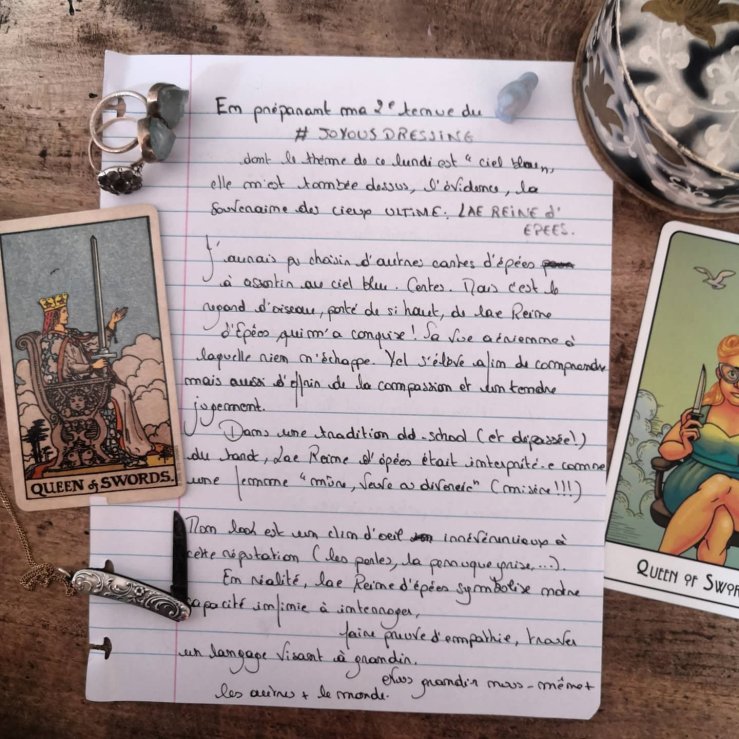 En préparant ma 2e tenue du
# JOYOUSDRESSING
dont le thème de ce lundi est "ciel bleu",
elle m'est tombée dessus, l'évidence, la
Souveraine des cieux ULTIME: LAE REINE d'
EPEES.
J'aurais pu choisir d'autres cartes d'épées
à assortir au ciel bleu. Certes. Mais c'est le
regard d'oiseau, porté de si haut, de lae Reine
d'Epées qui m'a conquise! Sa vue aérienne à
laquelle rien n'échappe. Yel s'élève afin de comprendre
mais aussi d'offrir de la compassion et un tendre
jugement.
Dans une tradition old-school (et dépassée!)
du tarot, Lae Reine d'épées était interprété.e comme
une femme "mûre, veuve ou divorcée" (misère!!!)
Mon look est un clin d'oeil irrévérencieux à
cette réputation (les perles, la perruque grise,...).
En réalité, lae Reine d'épées symbolise notre
capacité infinie à interroger,
faire preuve d'empathie, trouver
un langage visant à grandir.
nous-même +
les autres + le monde.
QUEEN of SWORDS.
QUEEN OF SWOR